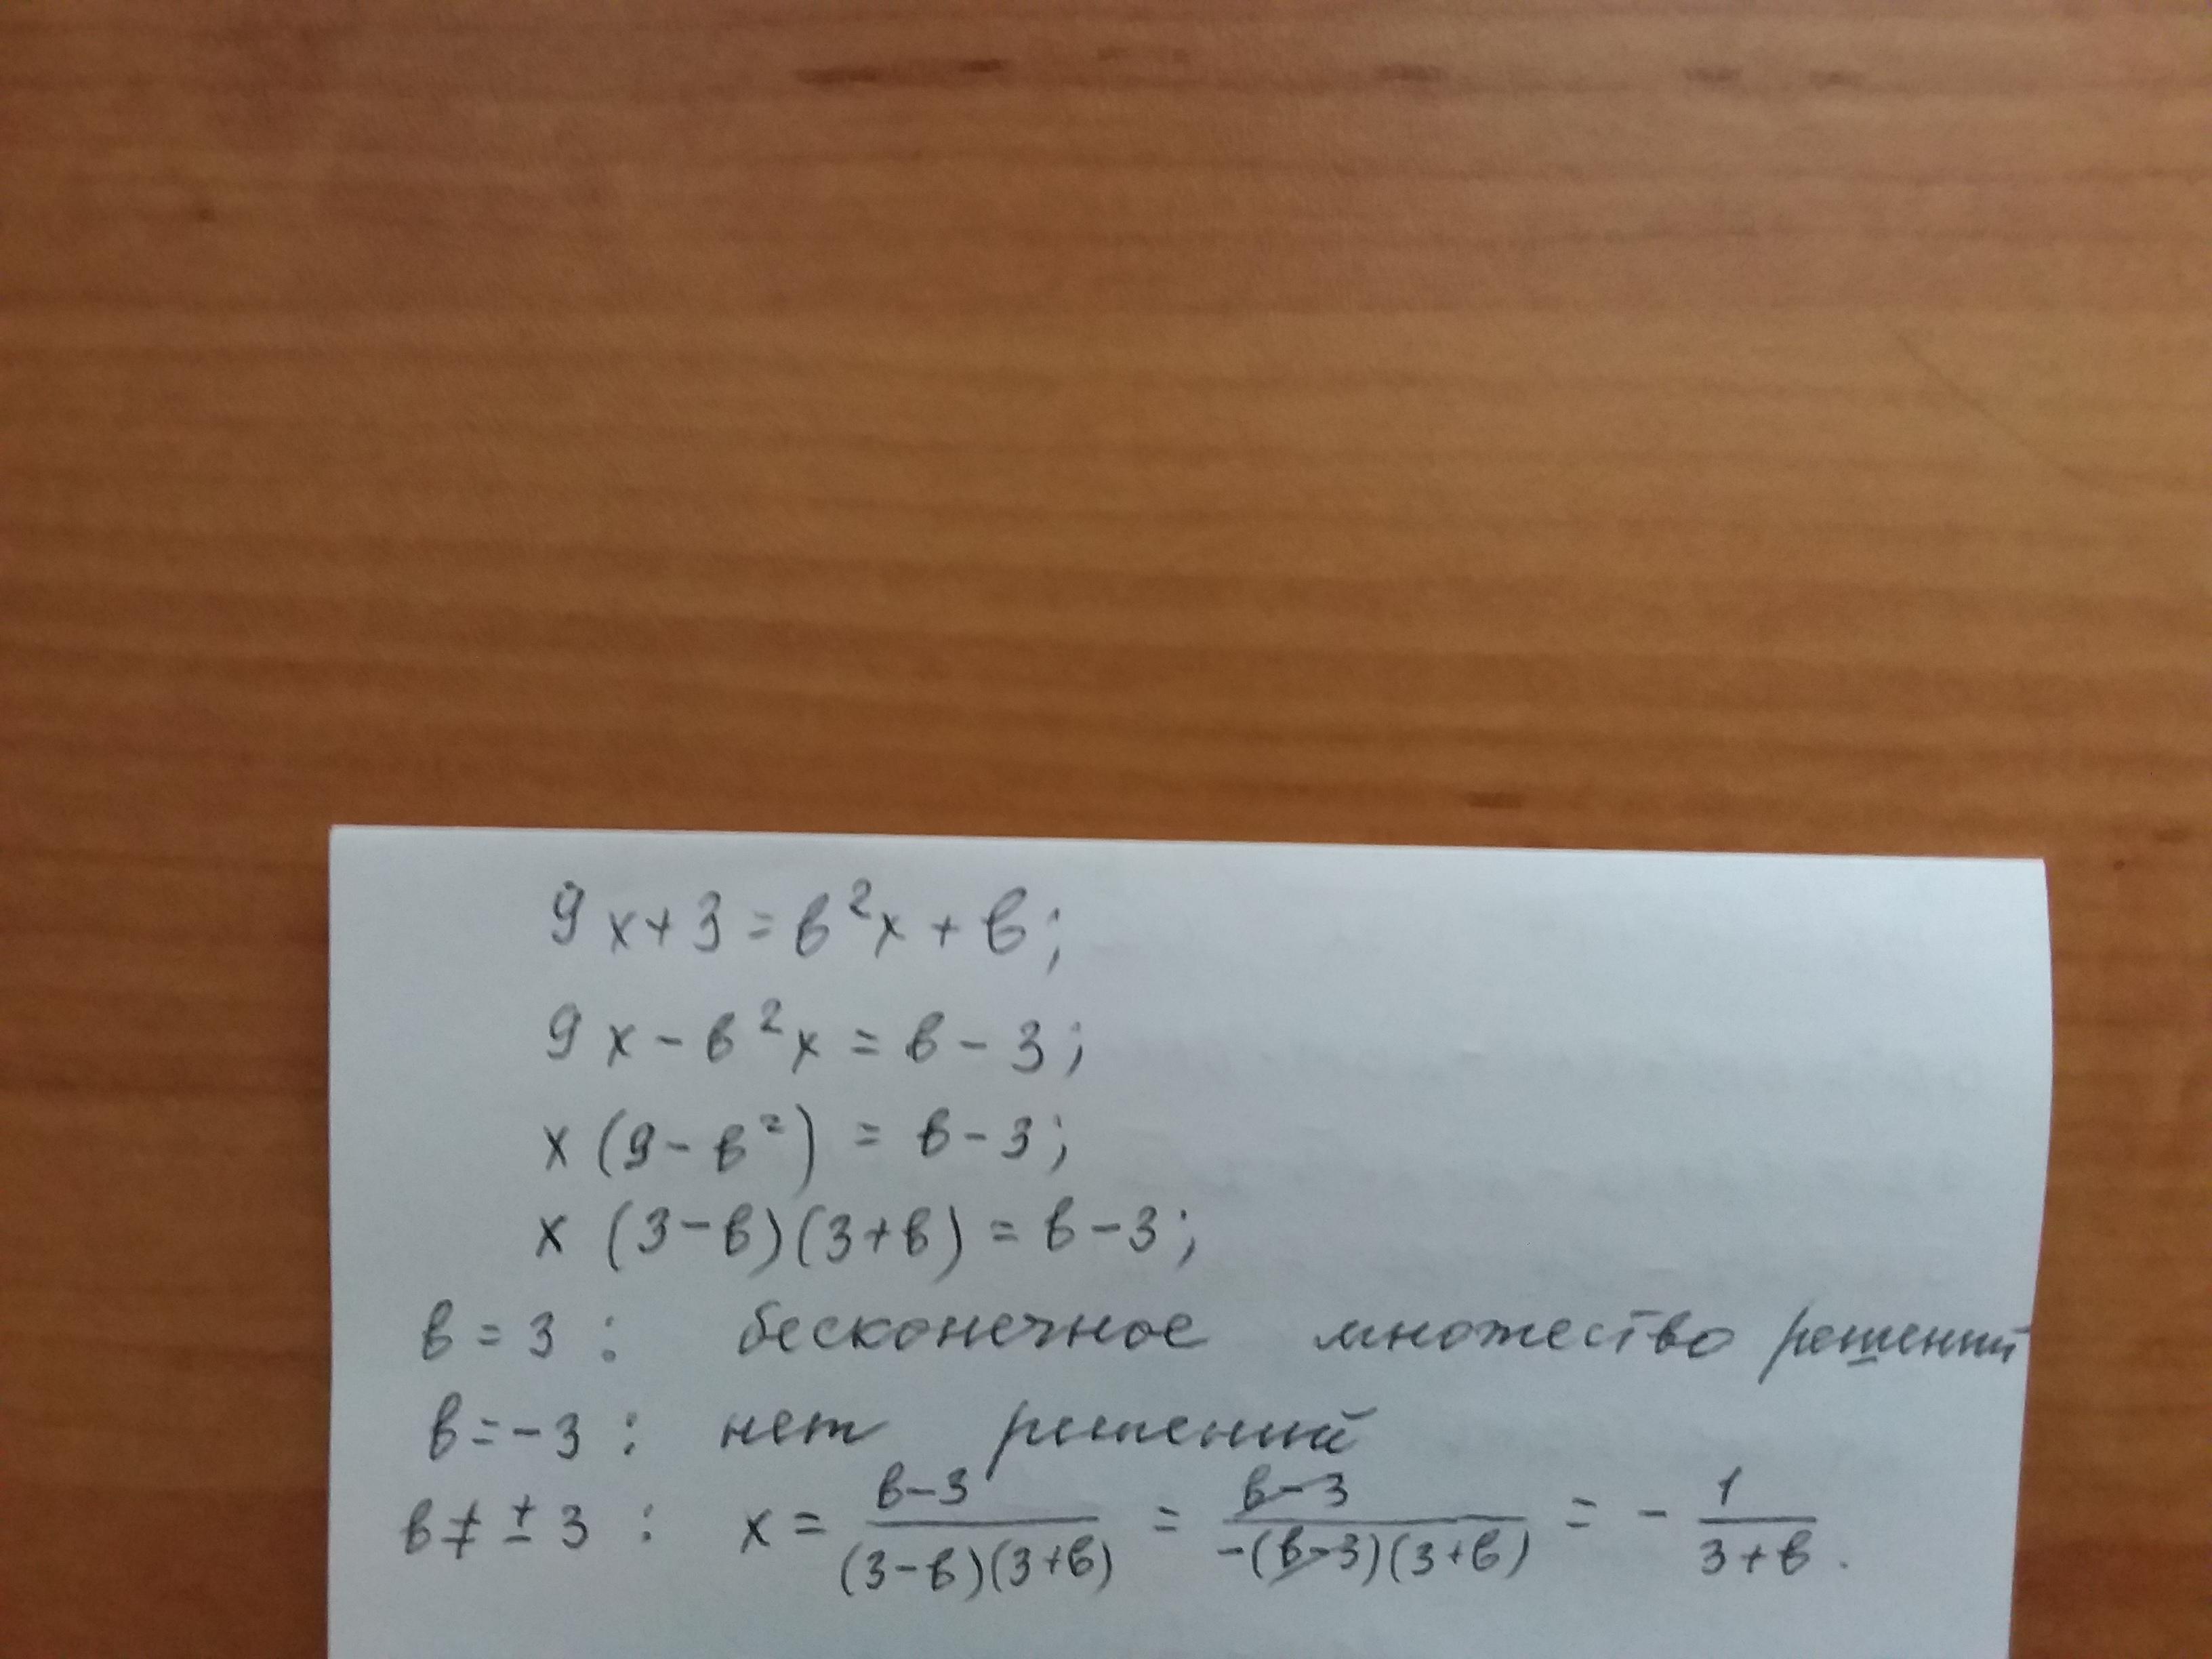 9x+3=в²x+в;
9x-в²x=в-3;
x(9-в²)=в-3;
x(3-в)(3+в)=в-3;
в=3: бесконечное множество решений
в=-3: нет решений
в≠±3: x= (в-3)/((3-в)(3+в)) = (в-3)/(-(в-3)(3+в)) = - 1/(3+в).